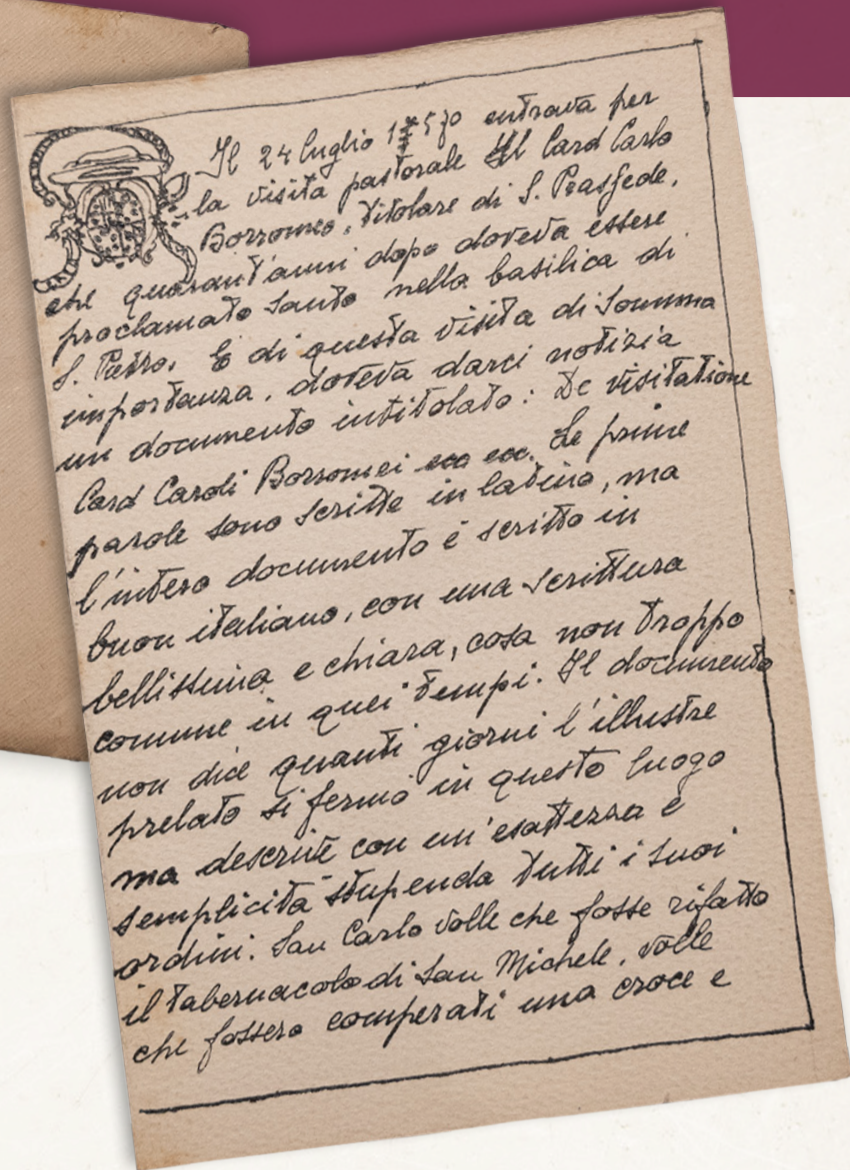 Il 24 luglio 1570 entrava per
la visita pastorale Il Card Carlo
Borromeo, titolare di S. Prassede,
che quarant'anni dopo doveva essere
proclamato Santo nella basilica di
S. Pietro. E di questa visita di somma
importanza, doveva darci notizia
un documento intitolato: De visitatione
Card Caroli Borromei ecc ecc. Le prime
parole sono scritte in latino, ma
l'intero documento è scritto in
buon italiano, con una scrittura
bellissima e chiara, cosa non troppo
comune in quei tempi. Il documento
non dice quanti giorni l'illustre
prelato si fermò in questo luogo
ma descrive con un'esattezza e
semplicità stupenda tutti i suoi
ordini. San Carlo volle che fosse rifatto
il tabernacolo di San Michele, volle
che fossero comperati una croce e